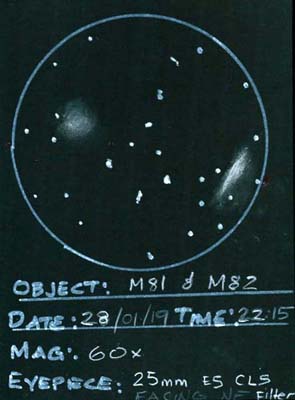 OBJECT: M81 & M82
DATE: 28/01/19 TIME: 22:15
MAG: 60x
EYEPIECE: 25mm ES CLS
FACING NE Filter